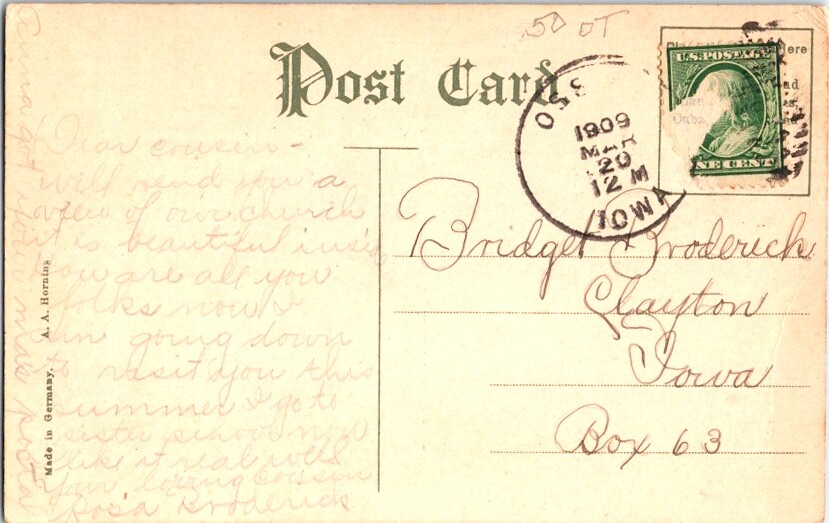 .50 OT
Post Card
Here
U.S. POSTAGE
ONE CENT
OSS
1909
MAR
20
12 M
IOWA
Dear cousin -
will send you a
view of our church
it is beautiful inside
how are all you
folks now I
am going down
to visit you this
summer I go to
sister school now
like it real well
Your loving cousin
Rosa Broderick
Anna got
postal
Made in Germany. A. A. Horning
Bridget Broderick
Clayton
Iowa
Box 63